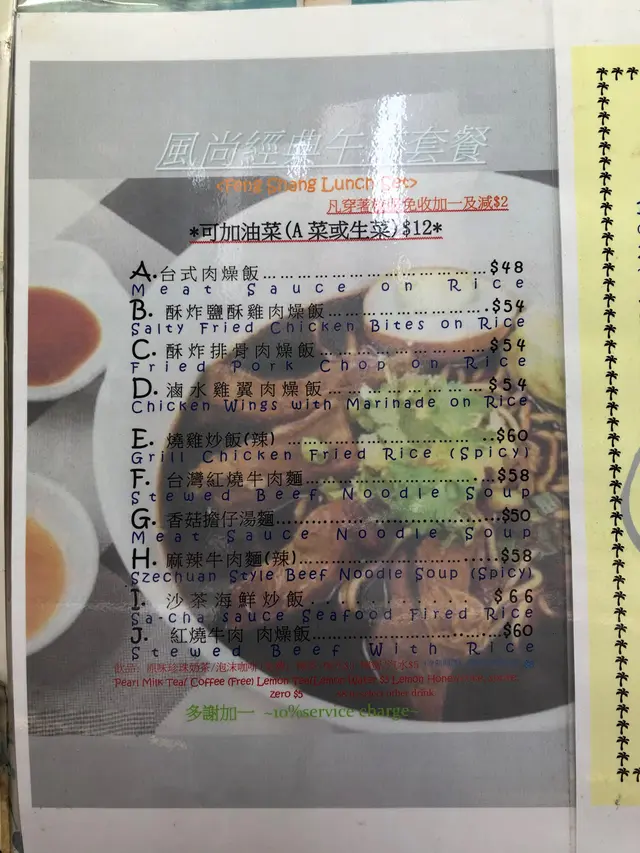 風尚經典午餐套餐
<Feng Shang Lunch Set>
凡穿著校服免收加一及減$2
*可加油菜(A菜或生菜)$12*
A.台式肉燥飯........................$48
Meat Sauce on Rice
B.酥炸鹽酥雞肉燥飯........................$54
Salty Fried Chicken Bites on Rice
C.酥炸排骨肉燥飯........................$54
Fried Pork Chop on Rice
D.滷水雞翼肉燥飯........................$54
Chicken Wings with Marinade on Rice
E.燒雞炒飯(辣)........................$60
Grill Chicken Fried Rice (Spicy)
F.台灣紅燒牛肉麵........................$58
Stewed Beef Noodle Soup
G.香菇擔仔湯麵........................$50
Meat Sauce Noodle Soup
H.麻辣牛肉麵(辣)........................$58
Szechuan Style Beef Noodle Soup (Spicy)
I.沙茶海鮮炒飯........................$66
Sa-cha sauce Seafood Fired Rice
J.紅燒牛肉 肉燥飯........................$60
Stewed Beef With Rice
飲品: 原味珍珠奶茶/泡沫咖啡
Pearl Milk Tea/ Coffee (Free) Lemon Tea/Lemon
zero $5 other drink
多謝加一 ~10%service charge~